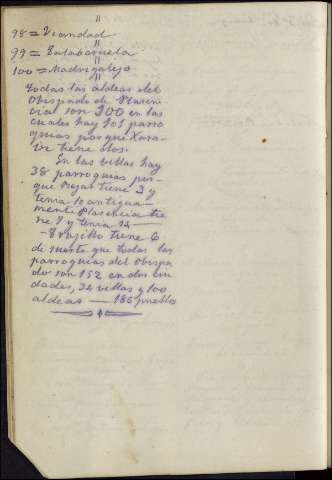 98 = Viandad
99 = Talabaruela
100 = Madrigalejo
Todas las aldeas del
Obispado de Plasen-
cia son 300 en las
cuales hay 101 parro
quias porque Xara-
iz tiene dos.
En las villas hay
38 parroquias por-
que Bejar tiene 3 y
tenia 10 antigua-
mente Plasencia tie
ne 7 y tenia 14 —
- Trujillo tiene 6
de suerte que todas las
parroquias del obispa
do son 152 en dos ciu
dades, 34 villas y 100
aldeas — 136 pueblos